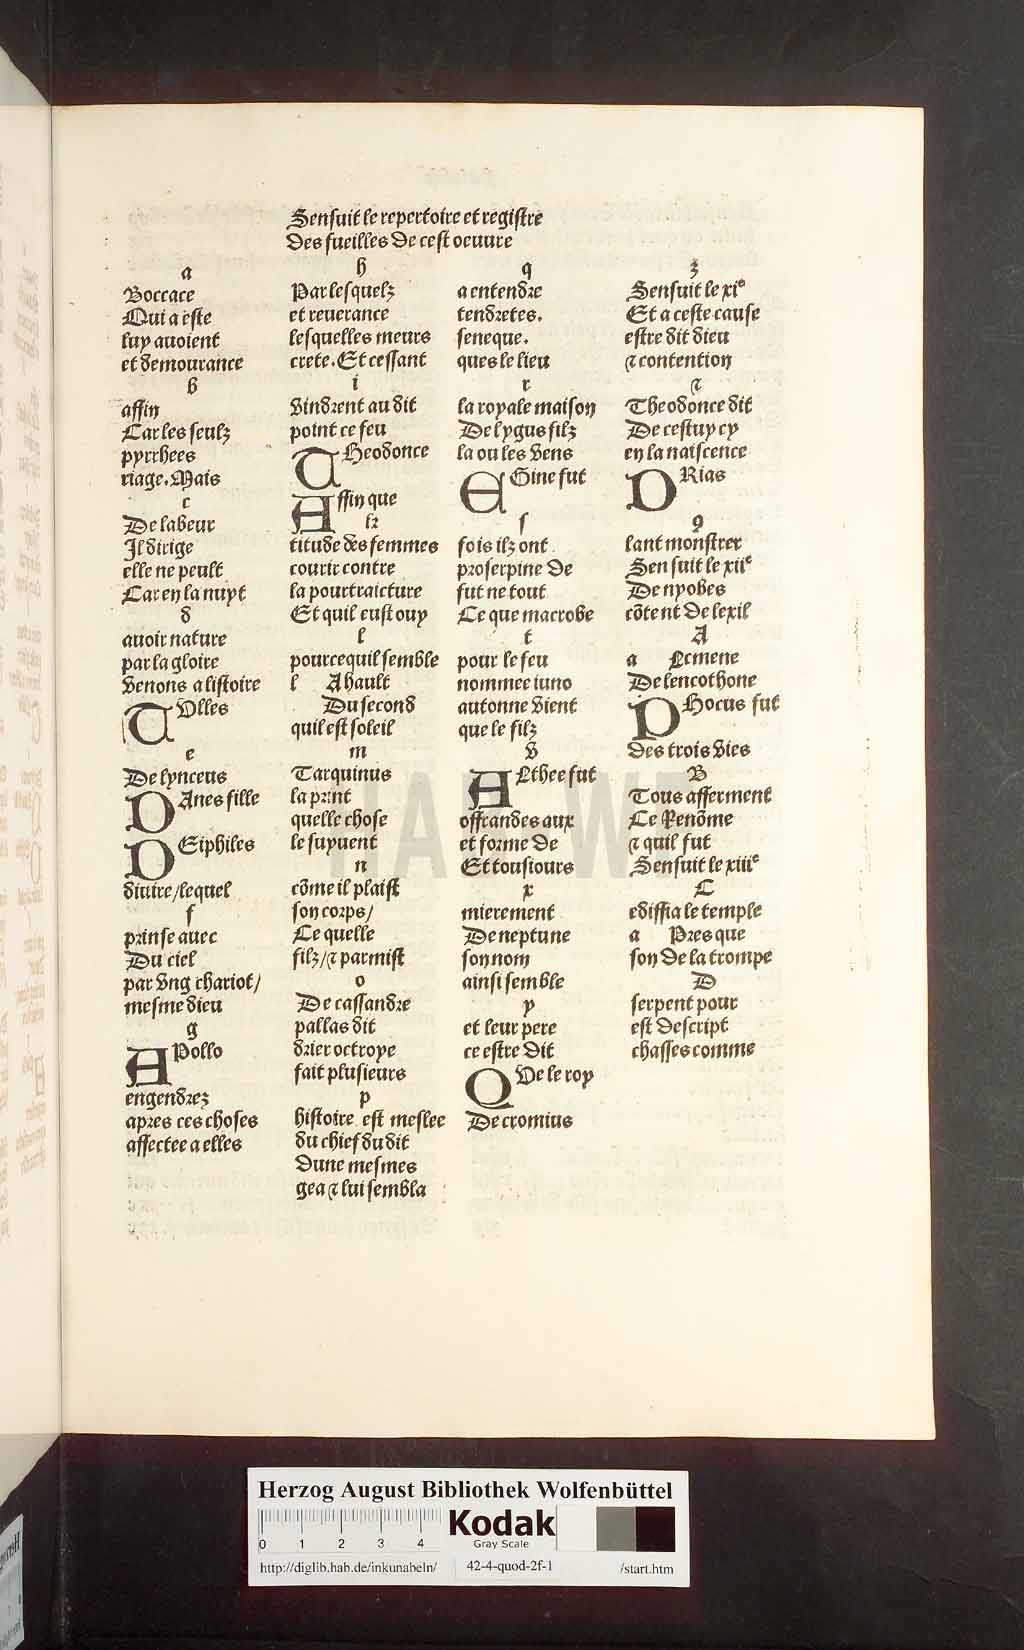 Sensuit le repertoire et registre
Des fueilles De cest oeuure
a
Boccace
Qui a este
luy auoient
et demourance
b
affin
Car les seulz
pyrrhees
riage. Mais
c
De labeur
Il dirige
elle ne peult
Car en la nuyt
d
auoir nature
par la gloire
venons a listoire
TVlles
e
De lynceus
DAnes fille
DEiphiles
diuire/lequel
f
prinse auec
Du ciel
par vng chariot/
mesme dieu
g
APollo
engendrez
apres ces choses
affectee a elles
h
Par lesquelz
et reuerance
lesquelles meurs
crete. Et cessant
i
vindrent au dit
point ce feu
THeodonce
AFfin que
k
titude des femmes
courir contre
la pourtraicture
Et quil eust ouy
l
pource quil semble
l Ahault
Du second
quil est soleil
m
Tarquinus
la print
quelle chose
le suyuent
n
cõme il plaist
son corps/
Ce quelle
filz/⁊ parmist
o
De cassandre
pallas dit
drier octroye
fait plusieurs
p
histoire est meslee
du chief du dit
Dune mesmes
gea ⁊ lui sembla
q
a entendre
tendretes.
seneque.
ques le lieu
r
la royale maison
De lygus filz
la ou les vens
EGine fut
ſ
fois ilz ont
proserpine De
fut ne tout
Ce que macrobe
t
pour le feu
nommee iuno
autonne vient
que le filz
v
ALthee fut
offrandes aux
et forme de
Et tousiours
x
mierement
De neptune
son nom
ainsi semble
y
et leur pere
ce estre dit
QVe le roy
De cromius
z
Sensuit le xiᵉ
Et a ceste cause
estre dit dieu
⁊ contention
⁊
Theodonce dit
De cestuy cy
en la naiscence
DRias
9
lant monstrer
Sensuit le xiiᵉ
De nyobes
cõtent De lexil
A
a Lcmene
De lencothone
PHocus fut
des trois vies
B
Tous afferment
Ce Renõme
⁊ quil fut
Sensuit le xiiiᵉ
C
ediffia le temple
a Pres que
son De la trompe
D
serpent pour
est Descript
chasses comme
HAB WF
Herzog August Bibliothek Wolfenbüttel
0 1 2 3 4
Kodak
Gray Scale
http://diglib.hab.de/inkunabeln/ 42-4-quod-2f-1 /start.htm